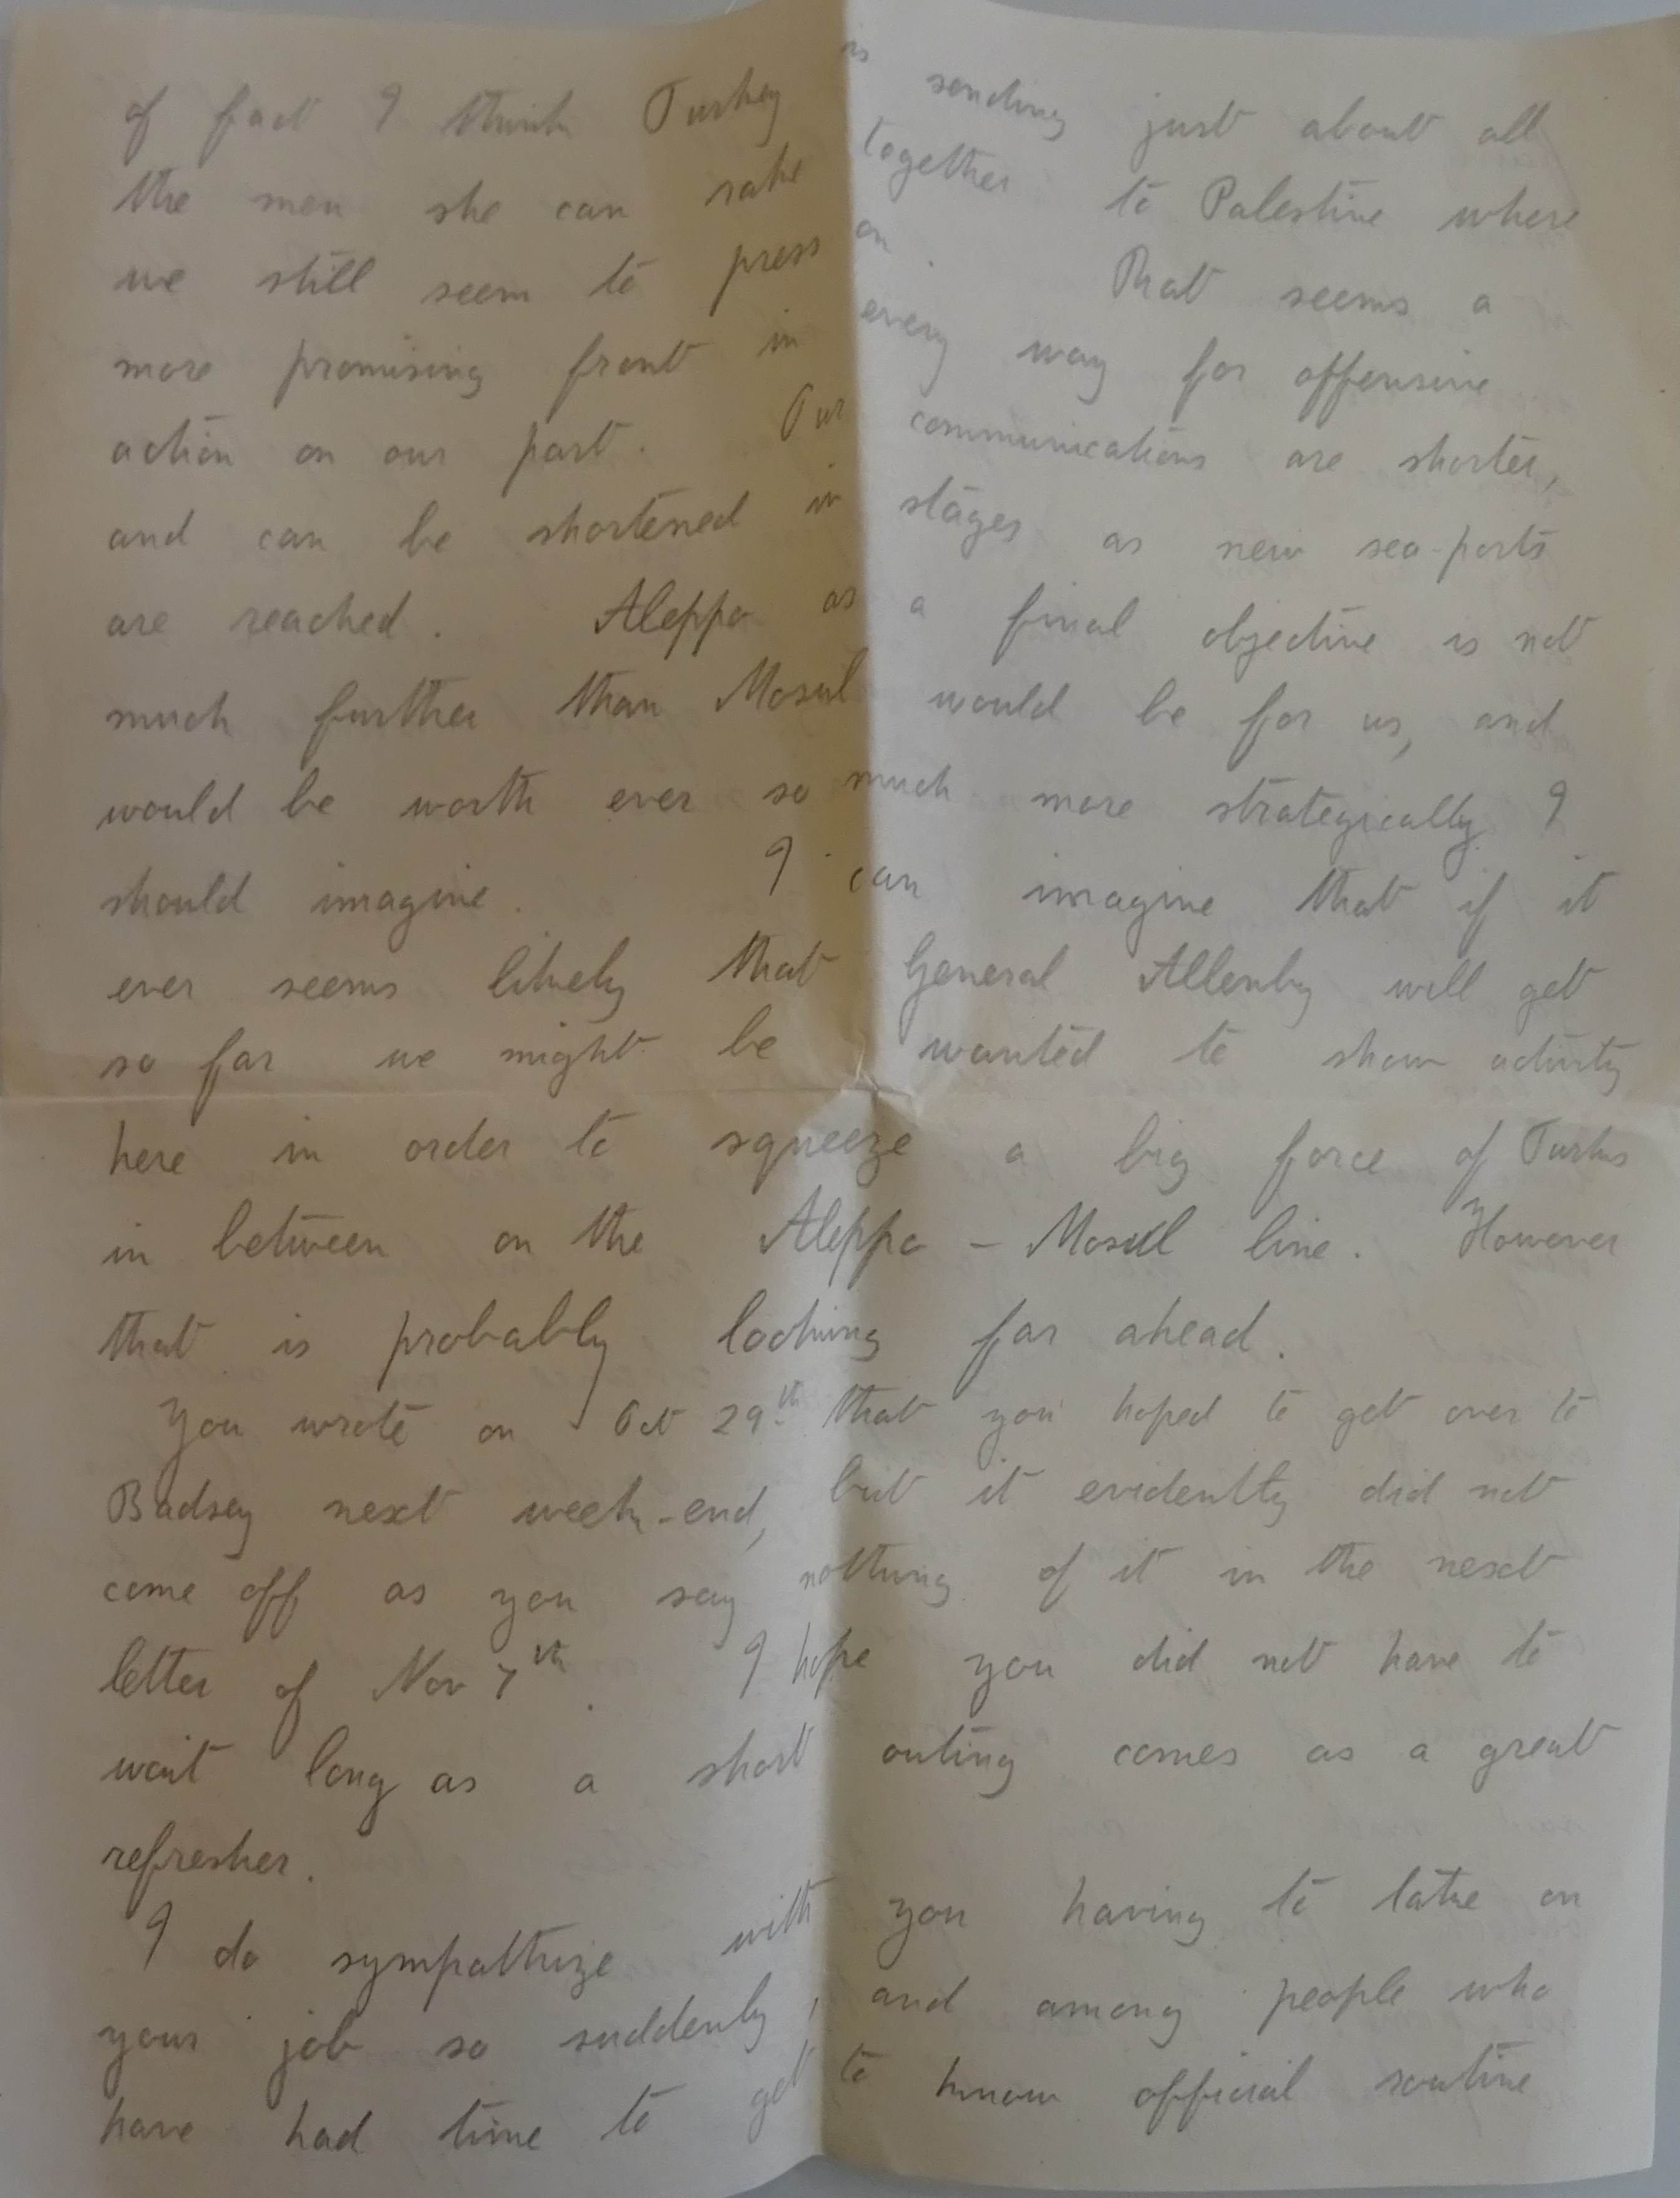 of fact I think Turkey is sending just about all
the men she can rake together to Palestine where
we still seem to press on. That seems a
more promising front in every way for offensive
action on our part. Our communications are shorter,
and can be shortened in stages as new sea-ports
are reached. Aleppo as a final objective is not
much further than Mosul would be for us, and
would be worth ever so much more strategically I
should imagine. I can imagine that if it
ever seems likely that General Allenby will get
so far we might be wanted to show activity
here in order to squeeze a big force of Turks
in between on the Aleppo - Mosul line. However
that is probably looking far ahead.
You wrote on Oct 29th that you hoped to get over to
Badsey next week-end, but it evidently did not
come off as you say nothing of it in the next
letter of Nov 7th. I hope you did not have to
wait long as a short outing comes as a great
refresher.
I do sympathize with you having to take on
your job so suddenly, and among people who
have had time to get to know official routine